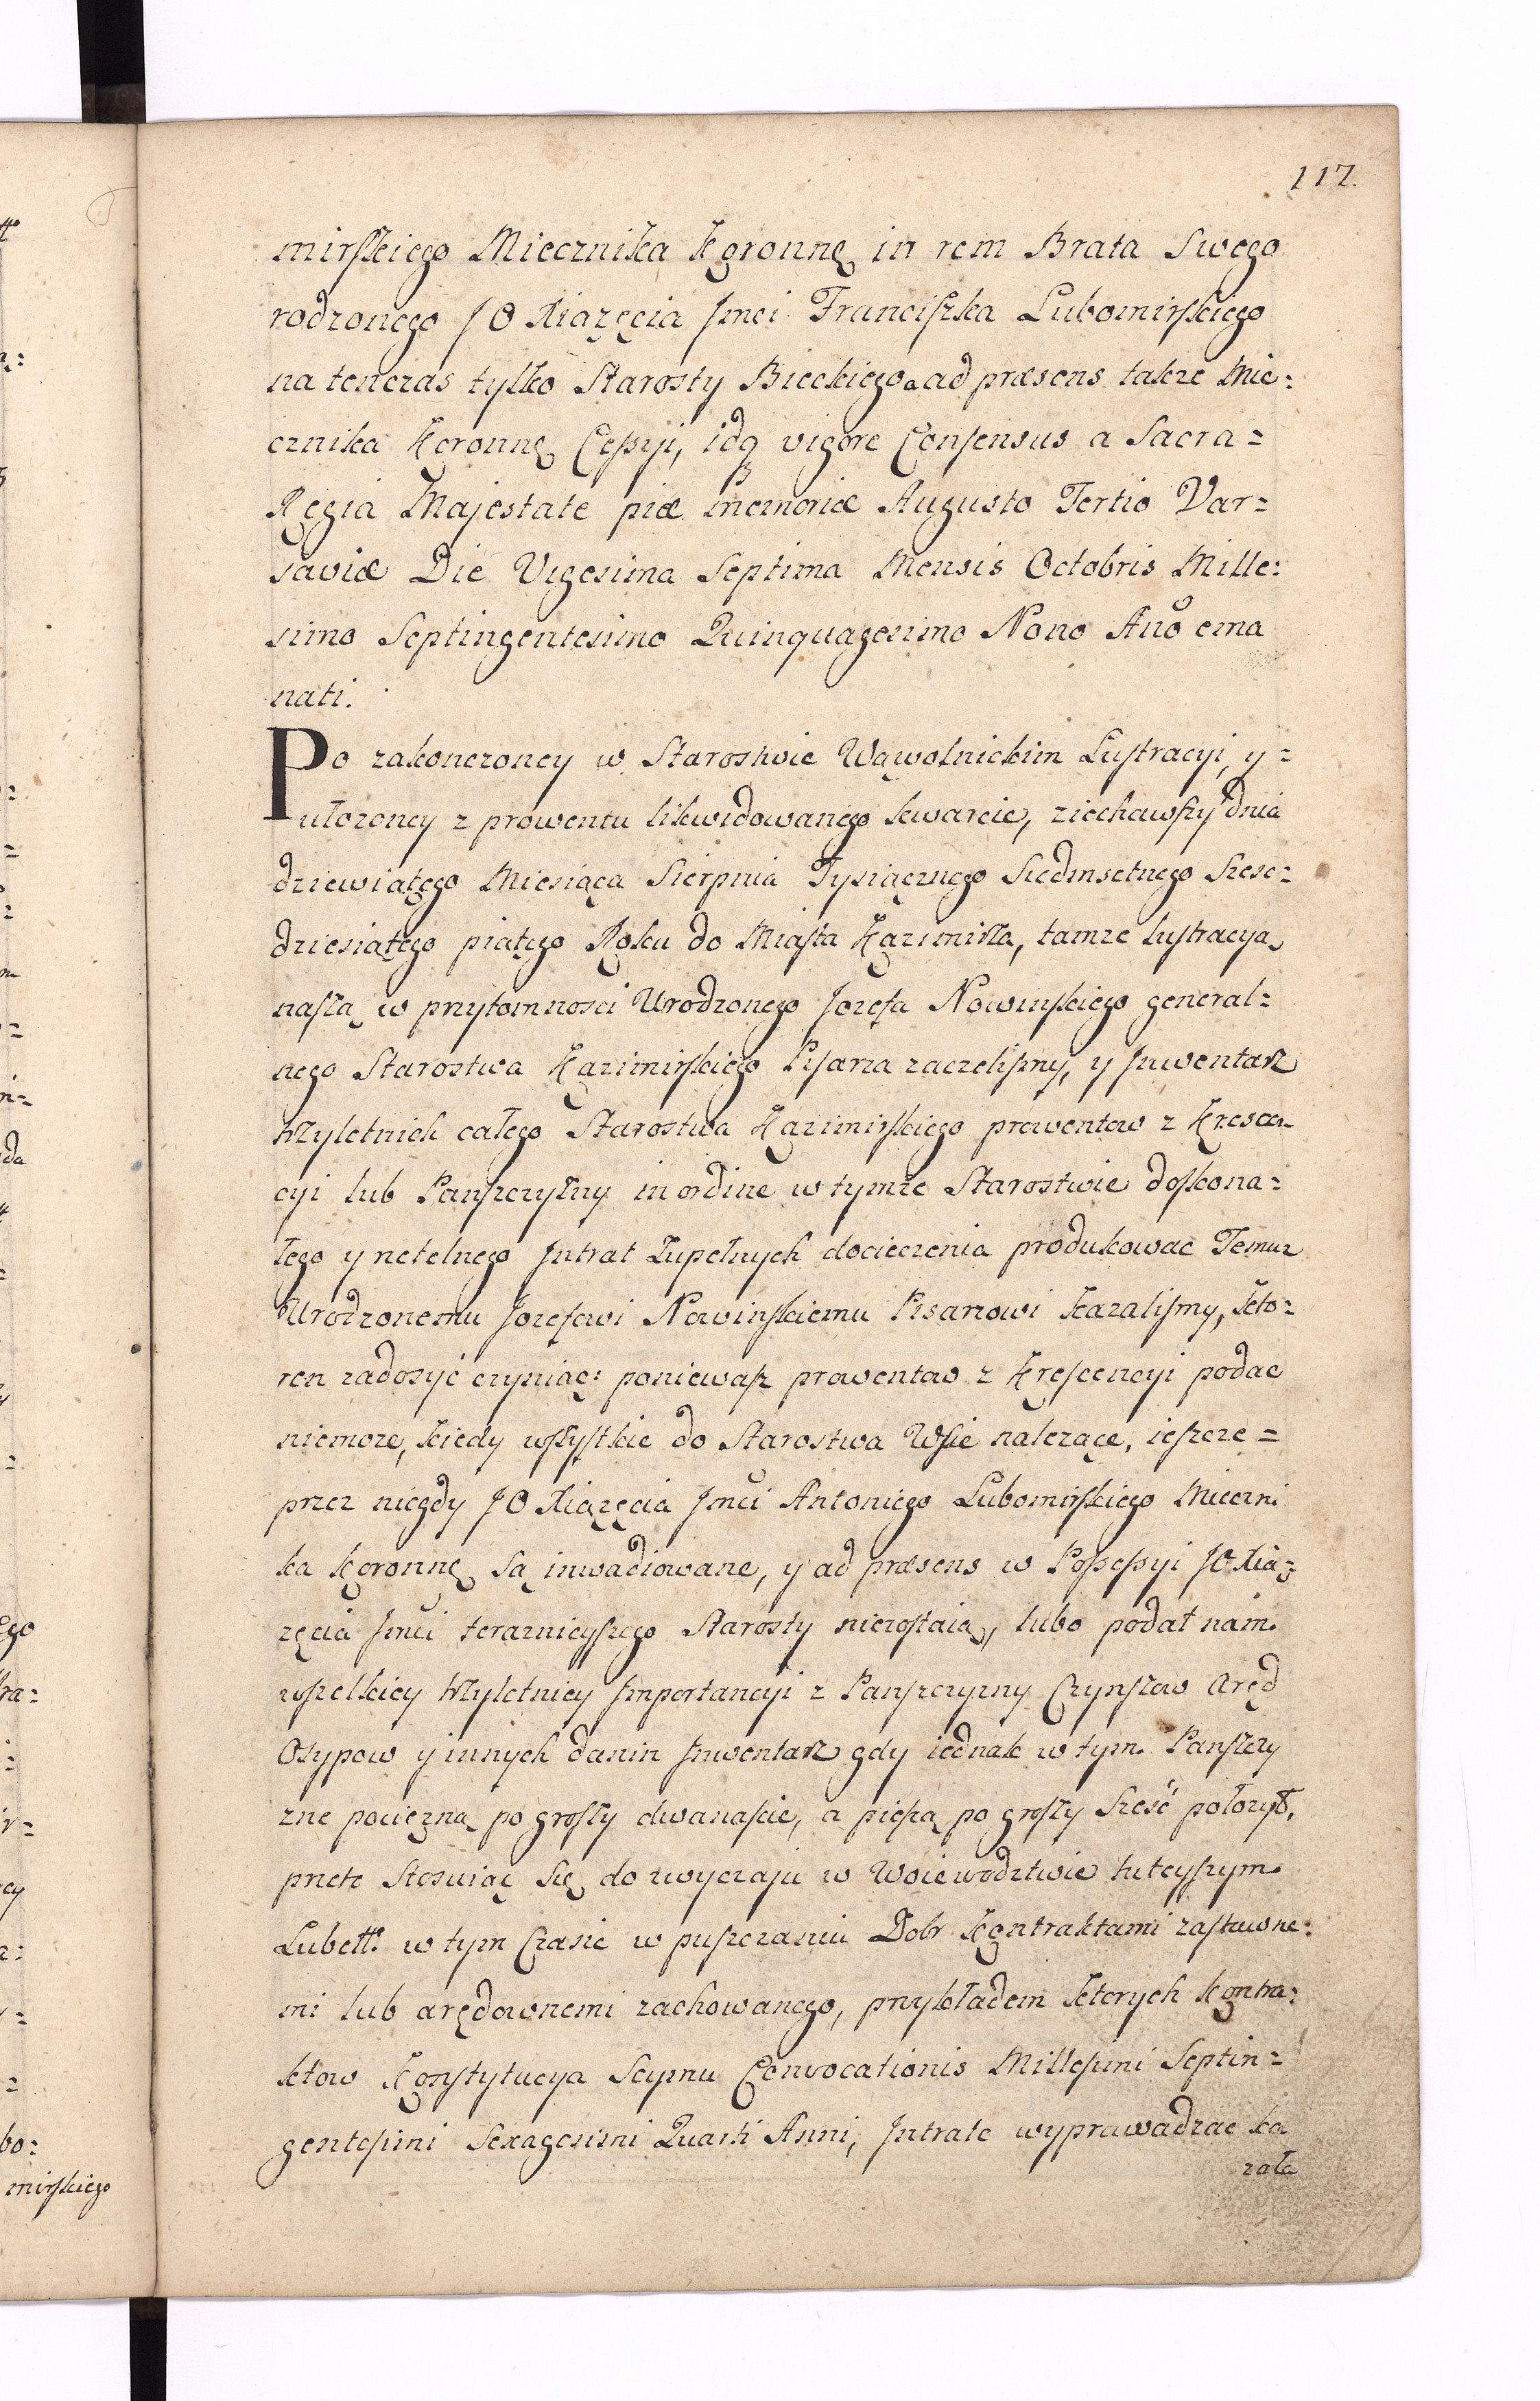 117.
mirskiego Miecznika Koronng in rem Brata Swego
rodzonego JO Xiązęcia Jmci Franciszka Lubomirskiego
na tenczas tylko Starosty Bieckiego a ad præsens takze Mie=
cznika Koronng Cessyi, idq vigore Consensus a Sacra=
Regia Majestate piæ memoriæ Augusto Tertio Var=
saviæ Die Vigesima Septima Mensis Octobris Mille=
simo Septingentesimo Quinquagesimo Nono Año ema
nati.
Po zakonczoney w Starostwie Wąwolnickim Lustracyi, y=
ułozoney z prowentu likwidowanego kwarcie, ziechawszy dnia
dziewiatego Miesiąca Sierpnia Tysiącznego Siedmsetnego Szesc=
dziesiątego piątego Roku do Miasta Kazimirza, tamze lustracyą
naszą w przytomnosci Urodzonego Jozefa Nowinskiego general=
nego Starostwa Kazimirskiego Pisarza zaczelismy, y Jnwentarz
Wszyletnich całego Starostwa Kazimirskiego prowentow z Krescen
cyi lub Panszczyzny in ordine w tymze Starostwie doskona=
łego y netelnego Jntrat Zupełnych docieczenia produkowac Temuz
Urodzonemu Jozefowi Nowinskiemu Pisarzowi kazalismy, kto=
ren zadosyć czyniąc: poniewasz prowentow z Krescencyi podac
niemoze, kiedy wszystkie do Starostwa Wsie nalezące, ieszcze=
przez niegdy JO Xiązęcia Jmci Antoniego Lubomirskiego Mieczni
ka Koronng Są inwadiowane, y ad præsens w Possessyi JO Xią=
zęcia Jmci teraznieyszego Starosty niezostaią, lubo podał nam
wszelkiey Wszyletniey Jmportancyi z Panszczyzny Czynszow Aręd
Osypow y innych danin Jnwentarz gdy iednak w tym Panszczy
zne pociezną po groszy dwanascie, a pieszą po groszy Sześć położył,
przeto Stosuiąc Się do zwyczaju w Woiewodztwie tuteyszym
Lubelł: w tym Czasie w puszczaniu Dobr Kontraktami zastawne=
mi lub arędownemi zachowanego, przykładem ktorych kontra=
ktow Konstytucya Seymu Convocationis Millesimi Septin=
gentesimi Sexagesimi Quarti Anni, Jntrate wyprowadzac ka
zała